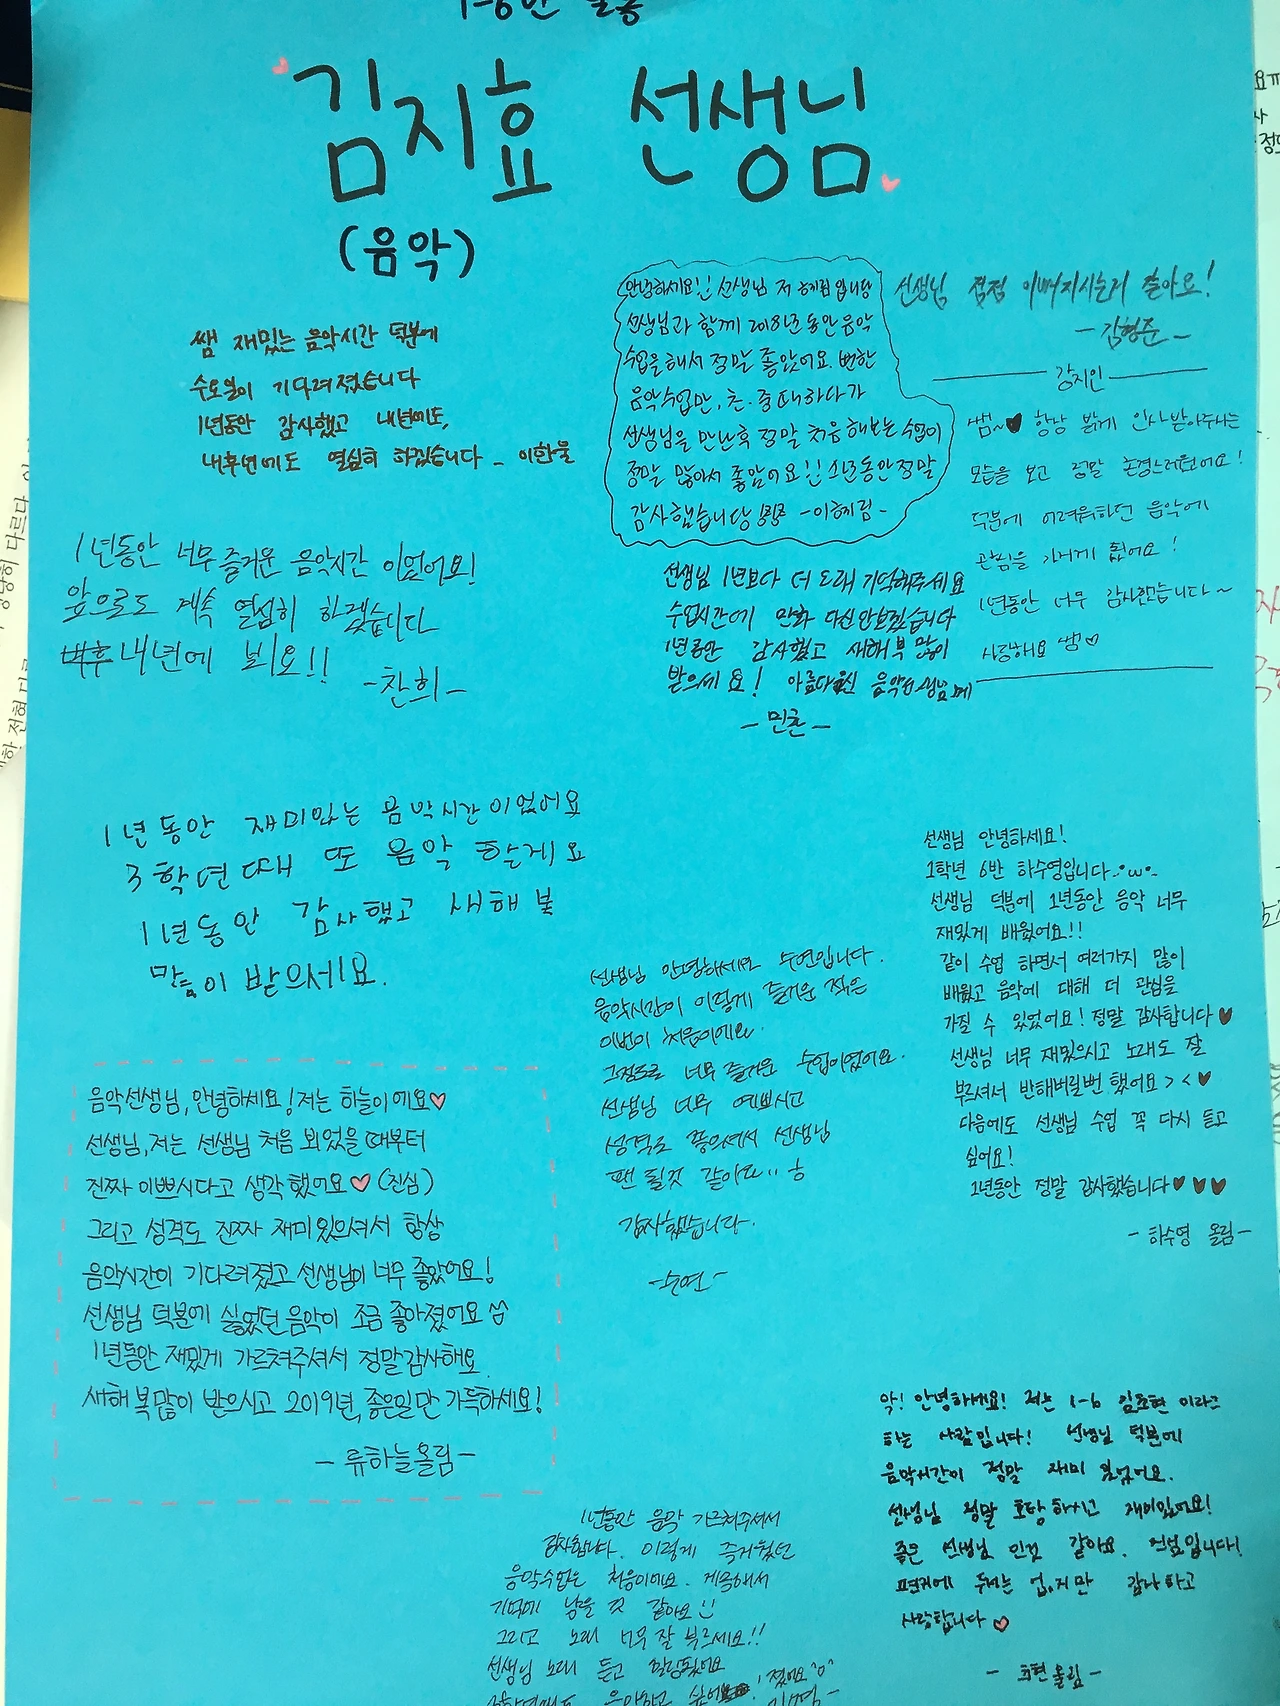 1-6반 일동
김지효 선생님
(음악)
쌤 재밌는 음악시간 덕분에
수요일이 기다려졌습니다
1년동안 감사했고 내년에도,
내후년에도 열심히 하겠습니다 - 이한울
안녕하세요!! 선생님 저 혜림입니당
선생님과 함께 2018년동안 음악
수업을해서 정말 좋았어요. 뻔한
음악수업만, 초.중때하다가
선생님을 만난후 정말 처음 해보는 수업이
정말 많아서 좋았어요!! 1년동안 정말
감사했습니당 -이혜림-
선생님 점점 이뻐지시는거 같아요!
-김형준-
강지인
쌤~♥ 항상 밝게 인사받아주시는
모습을 보고 정말 존경스러웠어요!
덕분에 어려워하던 음악에
관심을 가지게 됐어요!
1년동안 너무 감사했습니다~
사랑해요 쌤♡
1년동안 너무 즐거운 음악시간 이었어요!
앞으로도 계속 열심히 하겠습니다
내년에 뵈요!!
-찬희-
선생님 1년보다 더 오래 기억해주세요
수업시간에 만화 다신안보겠습니다
1년동안 감사했고 새해 복 많이
받으세요! 아름다우신 음악선생님께
-민준-
1년동안 재미있는 음악시간이었어요
3학년 때 또 음악 할게요
1년동안 감사했고 새해 복
많이 받으세요.
선생님 안녕하세요!
1학년 6반 하수영입니다.•ω•
선생님 덕분에 1년동안 음악 너무
재밌게 배웠어요!!
같이 수업 하면서 여러가지 많이
배웠고 음악에 대해 더 관심을
가질 수 있었어요! 정말 감사합니다♥
선생님 너무 재밌으시고 노래도 잘
부르셔서 반해버릴뻔 했어요 > < ♥
다음에도 선생님 수업 꼭 다시 듣고
싶어요!
1년동안 정말 감사했습니다♥♥♥
- 하수영 올림-
선생님 안녕하세요 수연입니다.
음악시간이 이렇게 즐거운 적은
이번이 처음이에요.
그정도로 너무 즐거운 수업이었어요.
선생님 너무 예쁘시고
성격도 좋으셔서 선생님
팬 될것 같아요
감사했습니다.
-수연-
음악선생님, 안녕하세요! 저는 하늘이에요♡
선생님, 저는 선생님 처음 뵈었을 때부터
진짜 이쁘시다고 생각했어요♡(진심)
그리고 성격도 진짜 재미있으셔서 항상
음악시간이 기다려졌고 선생님이 너무 좋았어요!
선생님 덕분에 싫었던 음악이 조금 좋아졌어요
1년동안 재밌게 가르쳐주셔서 정말감사해요
새해 복많이 받으시고 2019년, 좋은일만 가득하세요!
-류하늘올림-
악! 안녕하세요! 저는 1-6 임초현 이라고
하는 사람입니다! 선생님 덕분에
음악시간이 정말 재미 있었어요.
선생님 정말 호탕하시고 재미있어요!
좋은 선생님 인것 같아요. 진심입니다!
편지에 두서는 없지만 감사하고
사랑합니다♡
- 초현올림 -
1년동안 음악 가르쳐주셔서
감사합니다. 이렇게 즐거웠던
음악수업은 처음이에요. 계속해서
기억에 남을 것 같아요!!
그리고 노래 너무 잘 부르세요!!
선생님 노래 듣고 힐링됐어요